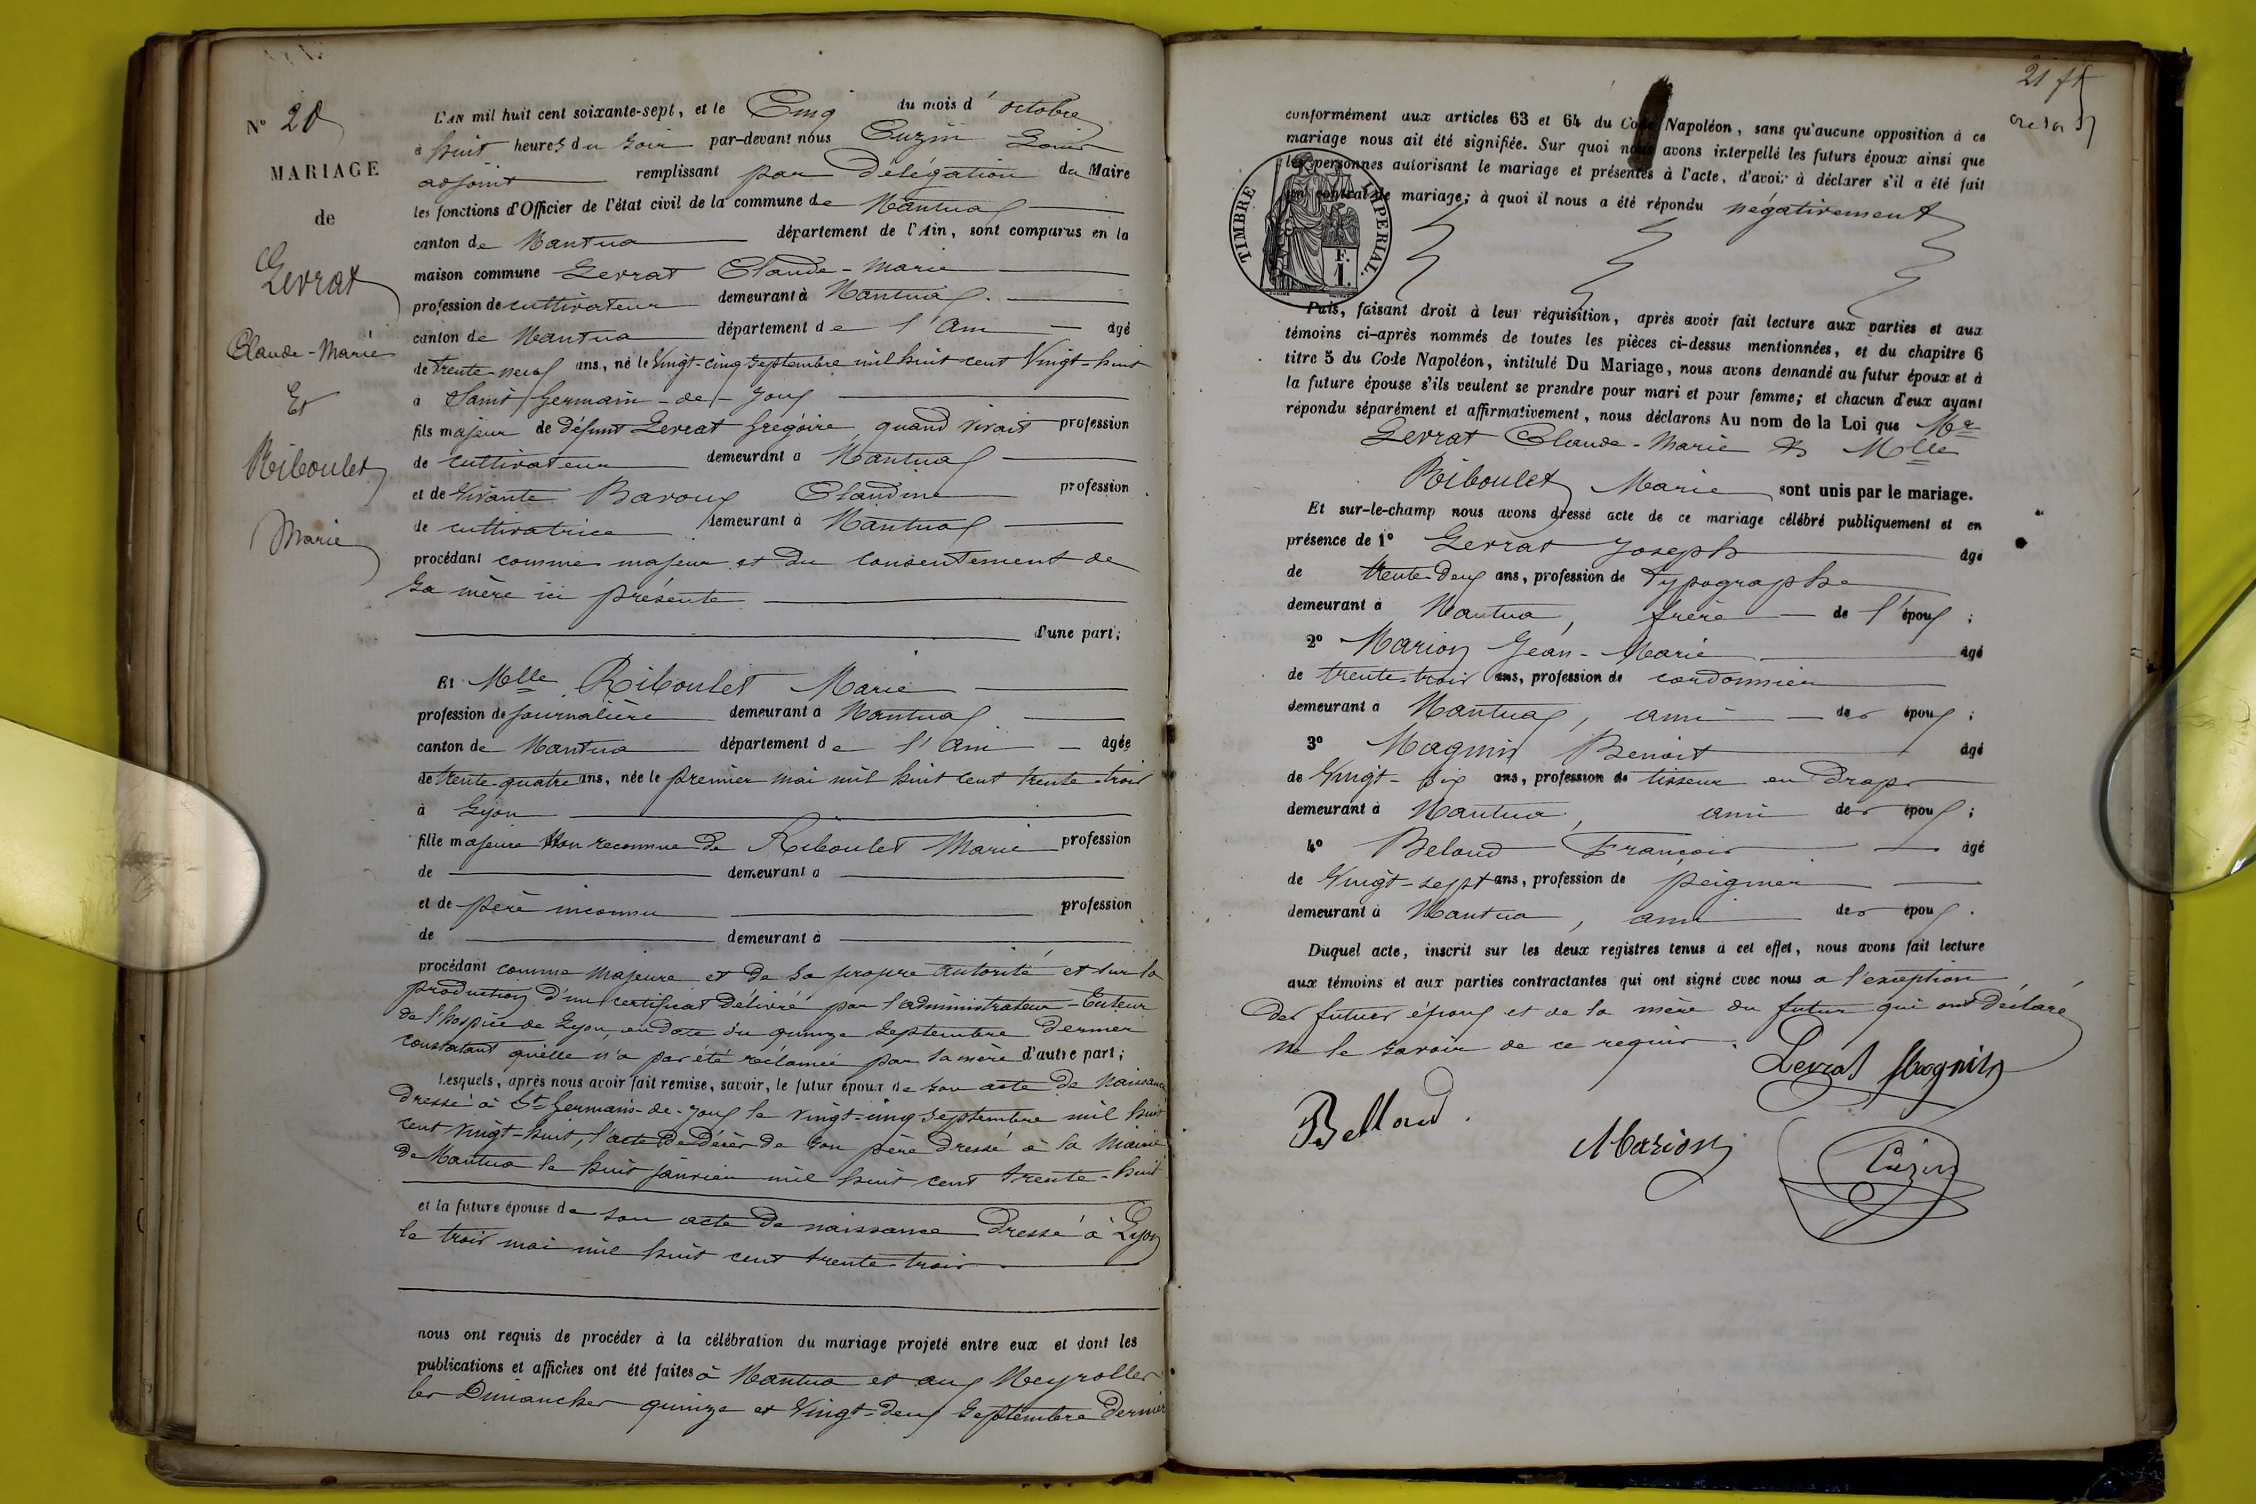 N° 20
MARIAGE
de
Levrat
Claude-Marie
Et
Riboulet
Marie
L'AN mil huit cent soixante-sept, et le Cinq du mois d'octobre
à huit heures du soir par-devant nous Cuzin Louis
adjoint remplissant par Délégation du Maire
les fonctions d'Officier de l'état civil de la commune de Nantua
canton de Nantua département de l'Ain, sont comparus en la
maison commune Levrat Claude-Marie
profession de cultivateur demeurant à Nantua
canton de Nantua département de l'Ain âgé
de trente-neuf ans, né le Vingt-cinq septembre mil huit cent Vingt-huit
à Saint Germain-de-Joux
fils majeur de défunt Levrat Grégoire quand vivait profession
de cultivateur demeurant à Nantua
et de Vivante Baroux Claudine profession
de cultivatrice demeurant à Nantua
procédant comme majeur et du consentement de
sa mère ici présente
d'une part;
Et Mlle Riboulet Marie
profession de journalière demeurant à Nantua
canton de Nantua département de l'Ain âgée
de trente-quatre ans, née le premier mai mil huit cent trente-trois
à Lyon
fille majeure Non reconnue de Riboulet Marie profession
de demeurant à
et de père inconnu profession
de demeurant à
procédant comme majeure et de sa propre autorité et sur la
production d'un certificat délivré par l'administrateur-Tuteur
de l'hospice de Lyon, en date du quinze septembre dernier
constatant qu'elle n'a pas été réclamée par sa mère d'autre part;
Lesquels, après nous avoir fait remise, savoir, le futur époux de son acte de Naissance
dressé à St Germain-de-Joux le vingt-cinq septembre mil huit
cent vingt-huit, l'acte de décès de son père dressé à la Mairie
de Nantua le huit janvier mil huit cent trente-huit
et la future épouse de son acte de naissance dressé à Lyon
le trois mai mil huit cent trente-trois
nous ont requis de procéder à la célébration du mariage projeté entre eux et dont les
publications et affiches ont été faites à Nantua et aux Neyrolles
les Dimanches quinze et Vingt-deux septembre dernier
21
conformément aux articles 63 et 64 du Code Napoléon, sans qu'aucune opposition à ce
mariage nous ait été signifiée. Sur quoi nous avons interpellé les futurs époux ainsi que
les personnes autorisant le mariage et présentes à l'acte, d'avoir à déclarer s'il a été fait
un contrat de mariage; à quoi il nous a été répondu négativement
TIMBRE IMPÉRIAL.
F.
1.
Puis, faisant droit à leur réquisition, après avoir fait lecture aux parties et aux
témoins ci-après nommés de toutes les pièces ci-dessus mentionnées, et du chapitre 6
titre 5 du Code Napoléon, intitulé Du Mariage, nous avons demandé au futur époux et à
la future épouse s'ils veulent se prendre pour mari et pour femme; et chacun d'eux ayant
répondu séparément et affirmativement, nous déclarons Au nom de la Loi que Mr
Levrat Claude-Marie & Mlle
Riboulet Marie sont unis par le mariage.
Et sur-le-champ nous avons dressé acte de ce mariage célébré publiquement et en
présence de 1° Levrat Joseph âgé
de trente-deux ans, profession de Typographe
demeurant à Nantua, frère de l'époux;
2° Marion Jean-Marie âgé
de trente-trois ans, profession de cordonnier
demeurant à Nantua, ami des époux;
3° Magnin Benoit âgé
de Vingt-six ans, profession de tisseur en draps
demeurant à Nantua, ami des époux;
4° Beloud François âgé
de Vingt-sept ans, profession de peignier
demeurant à Nantua, ami des époux.
Duquel acte, inscrit sur les deux registres tenus à cet effet, nous avons fait lecture
aux témoins et aux parties contractantes qui ont signé avec nous à l'exception
des futurs époux et de la mère du futur qui ont déclaré
ne le savoir de ce requis.
Levrat Magnin
Belloud
Marion
Cuzin